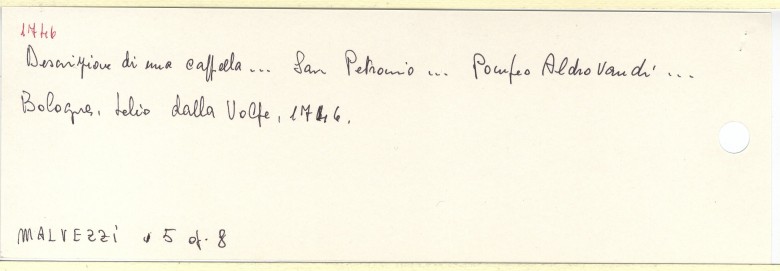 1746
Descrizione di una cappella... San Petronio... Pompeo Aldrovandi...
Bologna, Lelio dalla Volpe, 1746.
MALVEZZI 5 of. 8